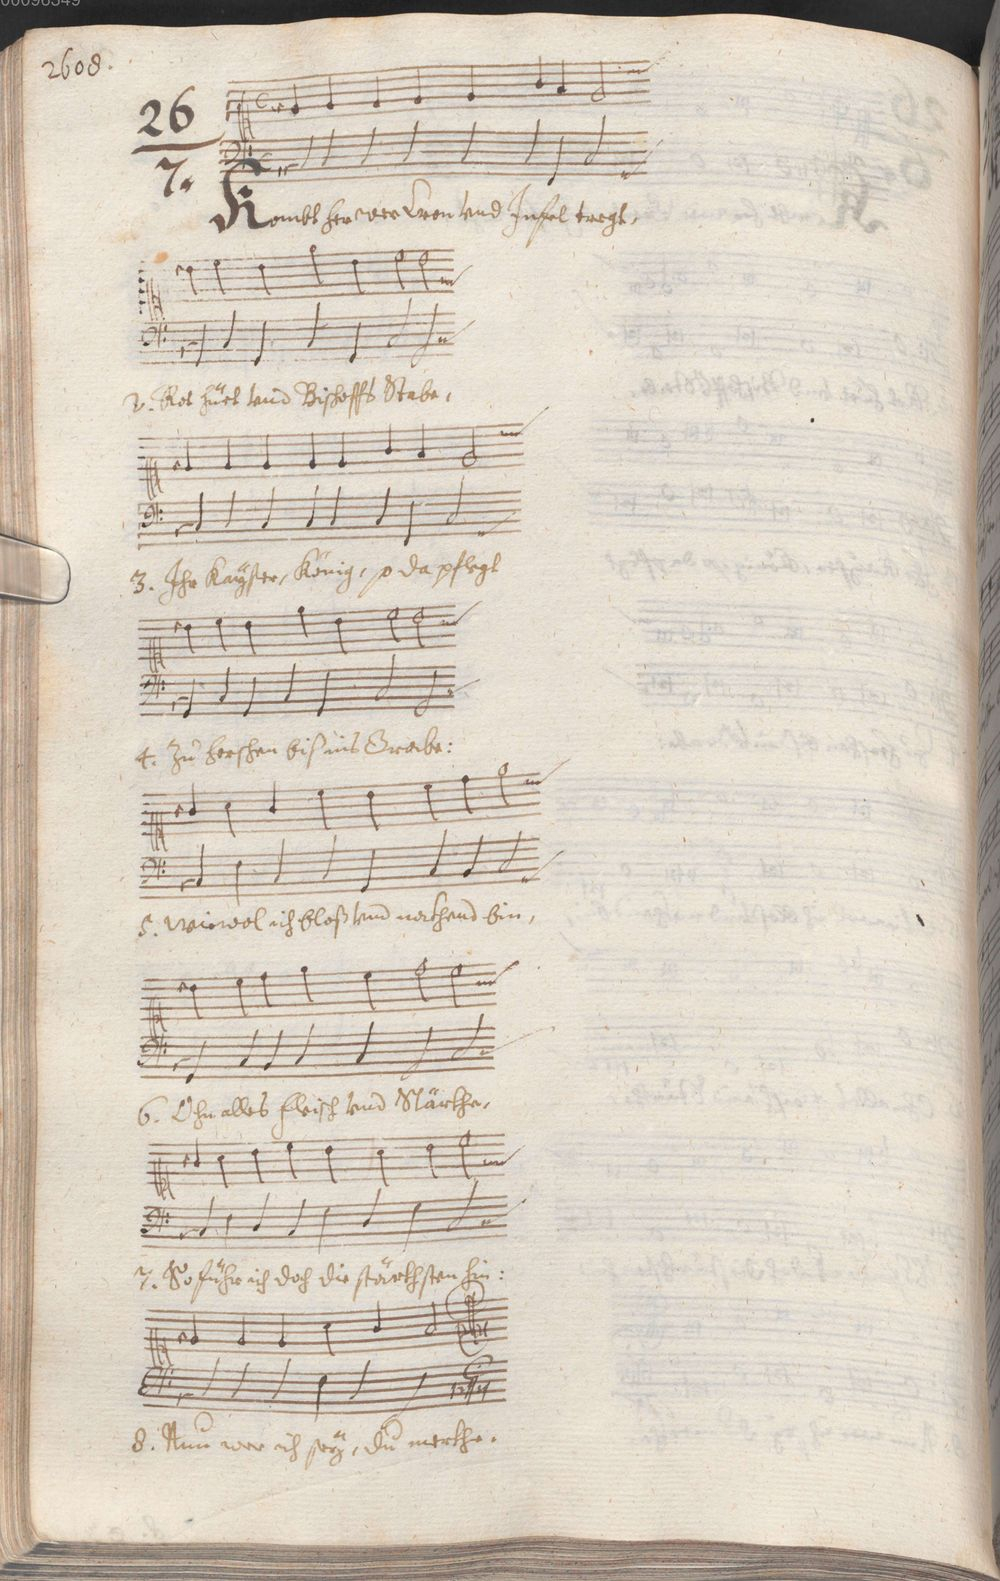 00098349
2608.
26
7.
Kombt her wer Cron vnd Infel tregt,
2. Rot hüet vnd Bischoffs Stabe,
3. Ihr Kayser, König, so da pflegt
4. Zu herschen biß ins Grabe:
5. Wiewol ich bloß vnd nackhend bin,
6. Ohn alles fleisch vnd Stärckhe,
7. So führ ich doch die stärckhsten hin:
8. Nun wer ich sey, du merckhe.